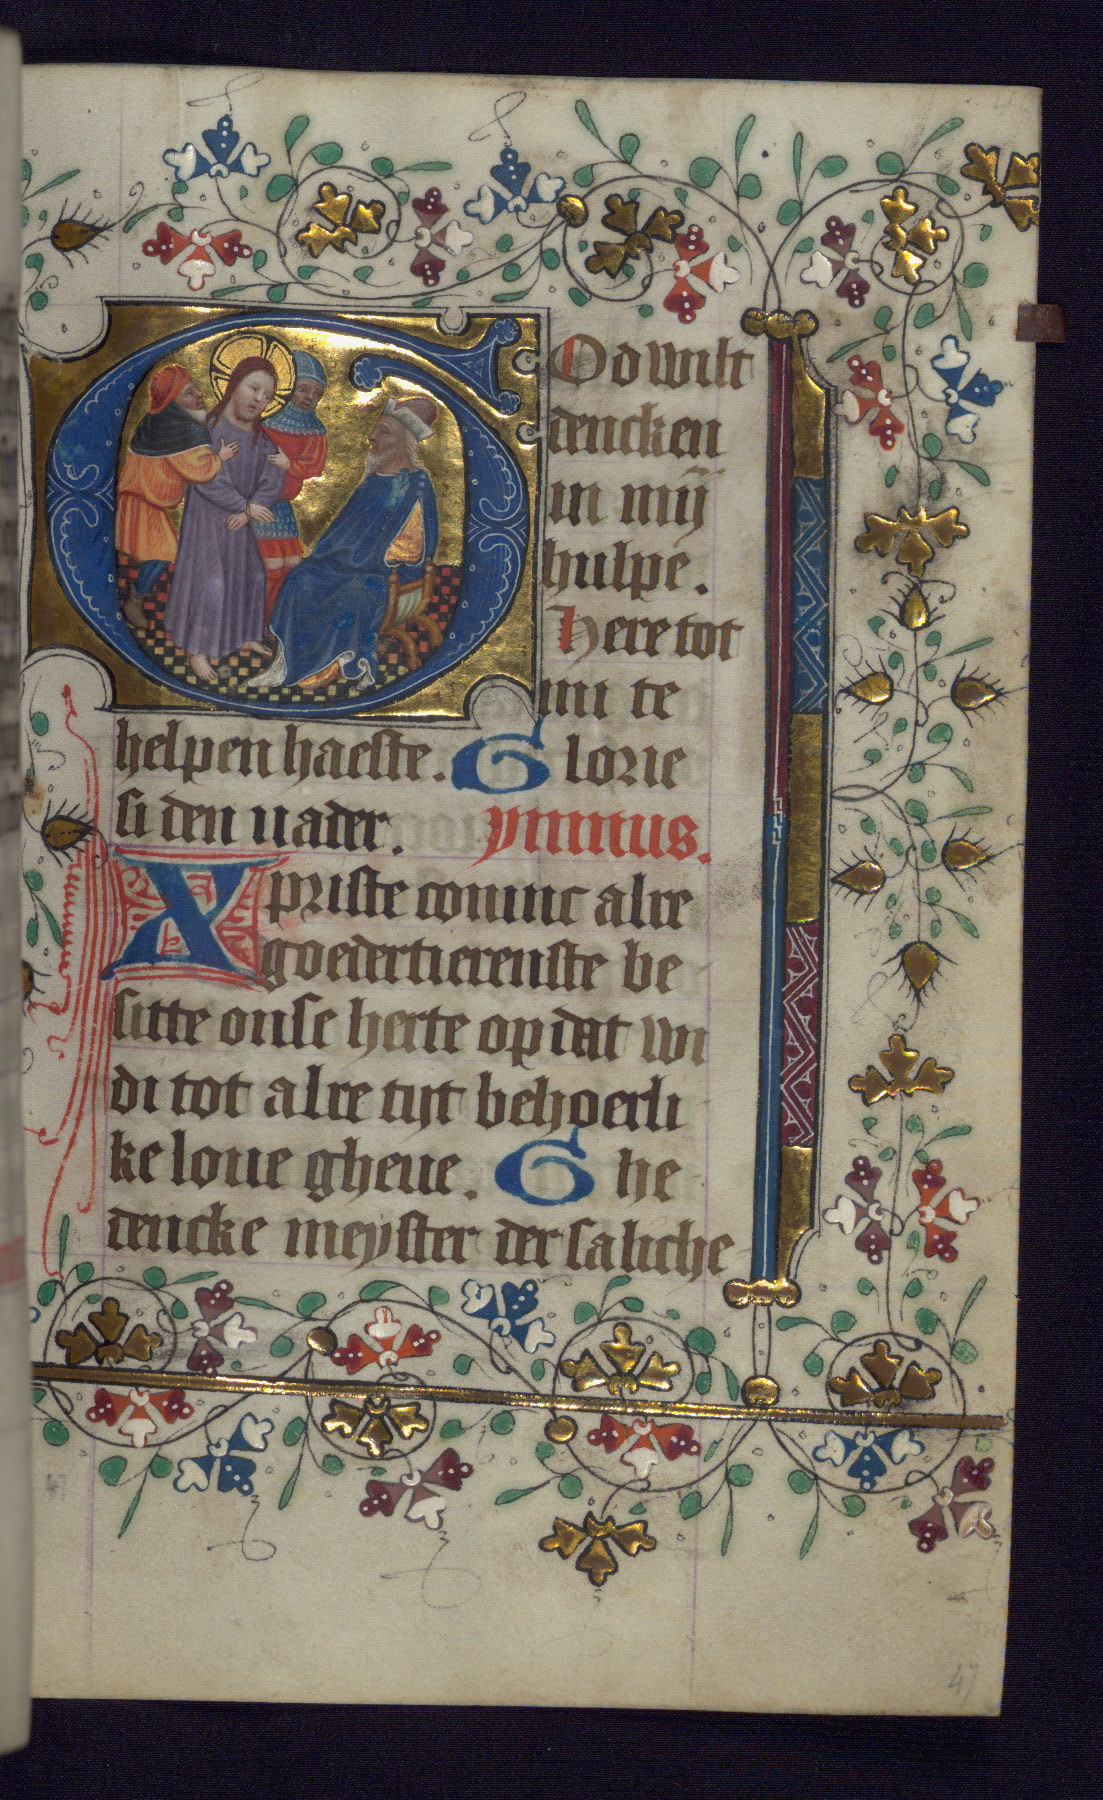 GOd wilt
dencken
in mij̄
hulpe.
Here tot
mi te
helpen haeste. Glorie
si den uader. ymnus.
Xpriste comt alre
goedertierenste be
sitte onse herte op dat wi
di tot alre tijt behoerli
ke loue gheue. Ghe
dencke meyster der saliche
47